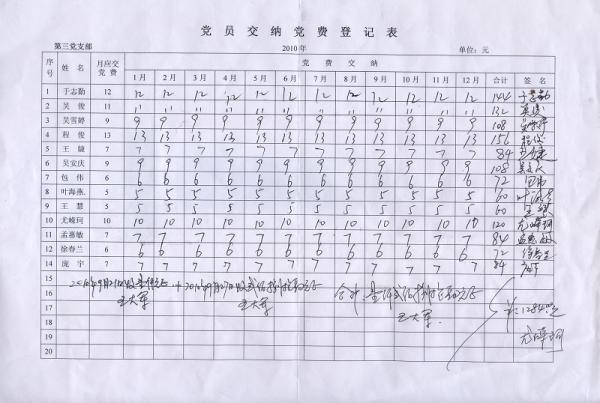 党 员 交 纳 党 费 登 记 表
第三党支部 2010 年 单位：元
序号 姓 名 月应交党 费 党 费 交 纳
1 月 2 月 3 月 4 月 5 月 6 月 7 月 8 月 9 月 10 月 11 月 12 月 合计 签 名
1 于志勤 12 12 12 12 12 12 12 12 12 12 12 12 12 144 于志勤
2 吴 俊 11 11 11 11 11 11 11 11 11 11 11 11 11 132 吴俊
3 吴雪婷 9 9 9 9 9 9 9 9 9 9 9 9 9 108 吴雪婷
4 程 俊 13 13 13 13 13 13 13 13 13 13 13 13 13 156 程俊
5 王 7 7 7 7 7 7 7 7 7 7 7 7 7 84
6 吴宏庆 9 9 9 9 9 9 9 9 9 9 9 9 9 108
7 包 伟 6 6 6 6 6 6 6 6 6 6 6 6 6 72 包伟
8 叶海燕 5 5 5 5 5 5 5 5 5 5 5 5 5 60 叶海燕
9 王 慧 5 5 5 5 5 5 5 5 5 5 5 5 5 60 王慧
10 尤嵘珂 10 10 10 10 10 10 10 10 10 10 10 10 10 120 尤嵘珂
11 孟惠敏 7 7 7 7 7 7 7 7 7 7 7 7 7 84 孟惠敏
12 徐春兰 6 6 6 6 6 6 6 6 6 6 6 6 6 72 徐春兰
14 庞 宇 7 7 7 7 7 7 7 7 7 7 7 7 7 84 庞宇
15
16 2010年9月 2010年9月27日收 合计
王大军 王大军 王大军
17 1284元
18
19 尤嵘珂
20